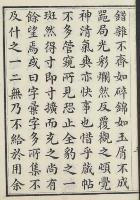 錯雜不齊如碎錦如玉屑不成
局光彩爛然反覆之頓覺
神清氣爽亦快事也惜乎帖
不多管窺所見恐止全豹之一
斑然得寸即寸擴而充之尚有
餘望焉或曰字彙字多所集不
及什之一二無乃不給於用余